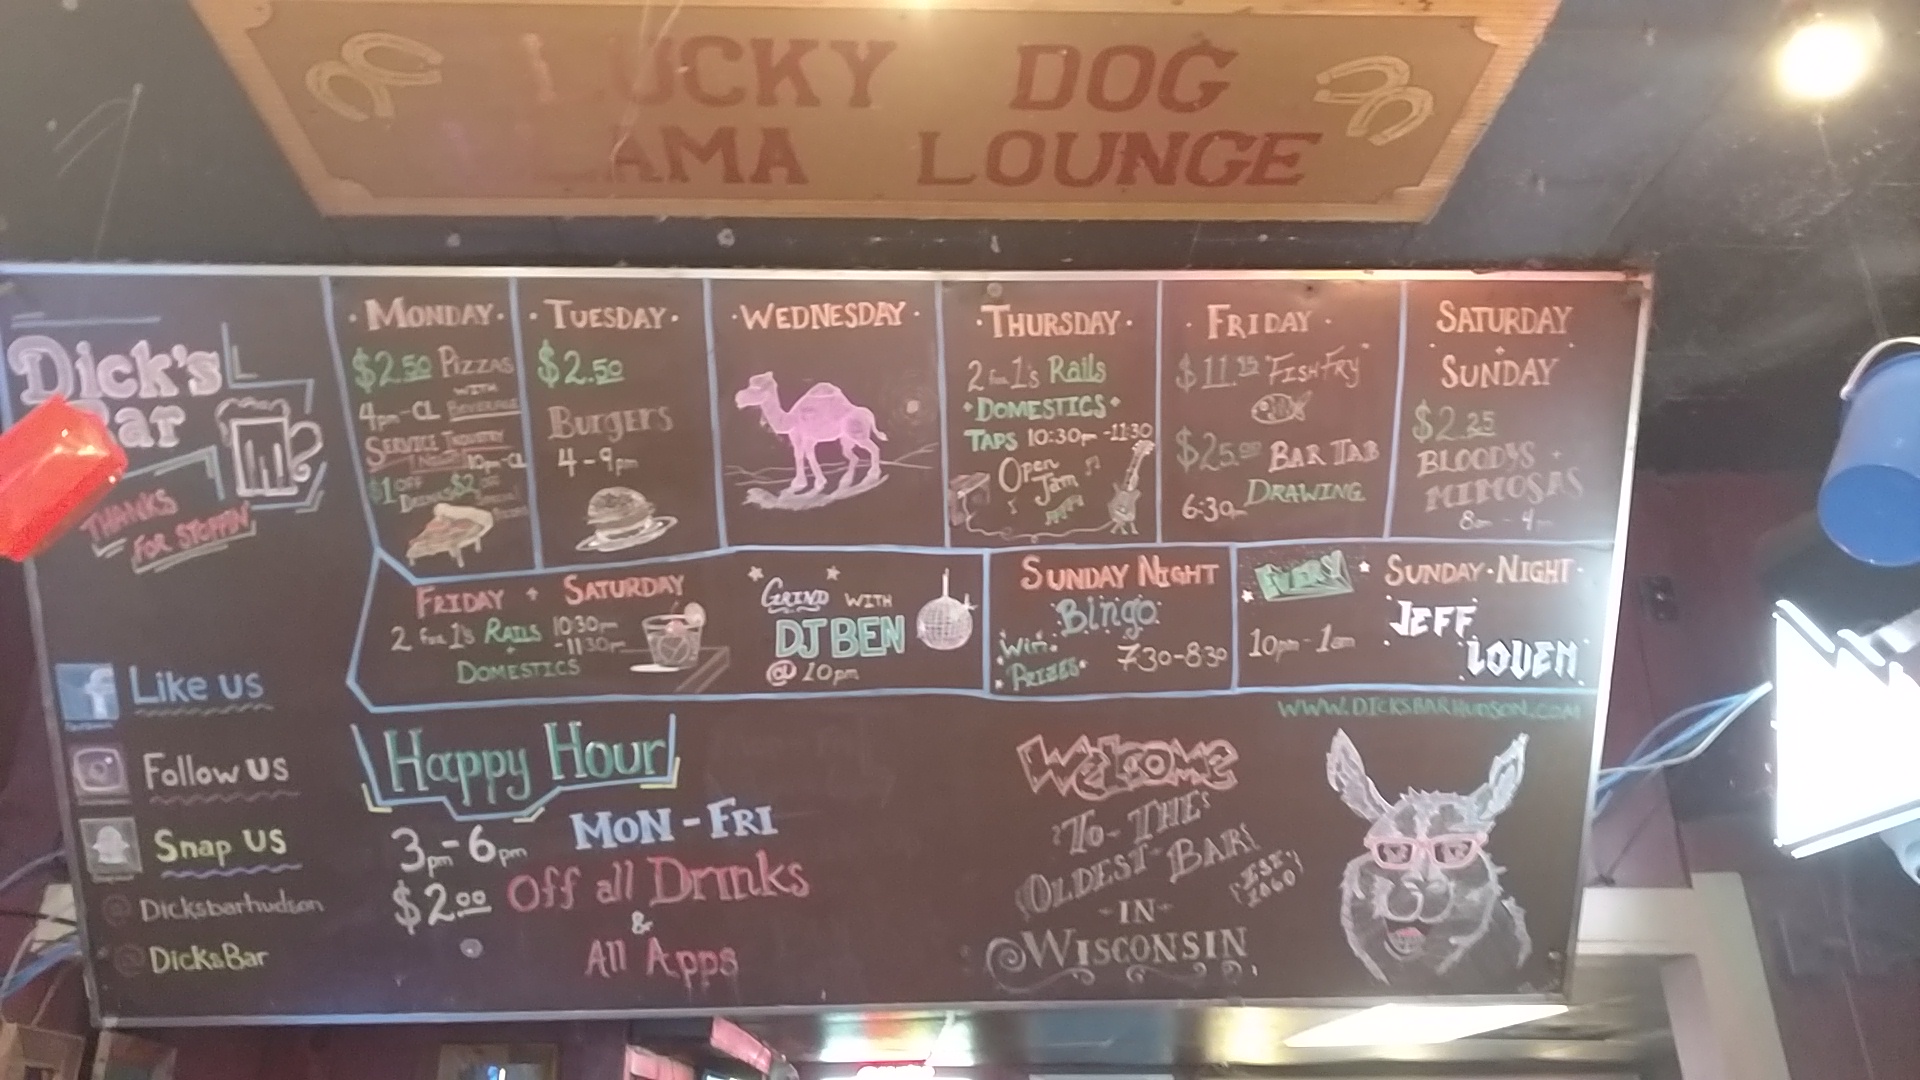 UCKY DOG
AMA LOUNGE
Dick's
Bar
THANKS
FOR STOPPIN'
MONDAY
$2.50 PIZZAS
WITH
4pm-CL BEVERAGE
SERVICE INDUSTRY
NIGHT 10pm-CL
$1 OFF
DRINKS $2
TUESDAY
$2.50
Burgers
4-9pm
WEDNESDAY
THURSDAY
2 for 1's Rails
DOMESTICS
TAPS 10:30pm-11:30
Open
Jam
FRIDAY
FISH FRY
$25.00 BAR TAB
6:30pm DRAWING
SATURDAY
+
SUNDAY
BLOODYS +
MIMOSAS
8am - 4pm
FRIDAY + SATURDAY
2 for 1's RAILS 10:30pm
-11:30pm
+
DOMESTICS
GRIND WITH
DJ BEN
@ 10pm
SUNDAY NIGHT
Bingo
Win
PRIZES 730-830
EVERY SUNDAY NIGHT
10pm-1am
JEFF
LOVEN
WWW.DICKSBARHUDSON.COM
Like us
Follow us
Snap us
@Dicksbarhudson
@DicksBar
Happy Hour
3pm-6pm MON-FRI
$2.00 Off all Drinks
&
All Apps
Welcome
To THE
OLDEST BAR
IN
WISCONSIN